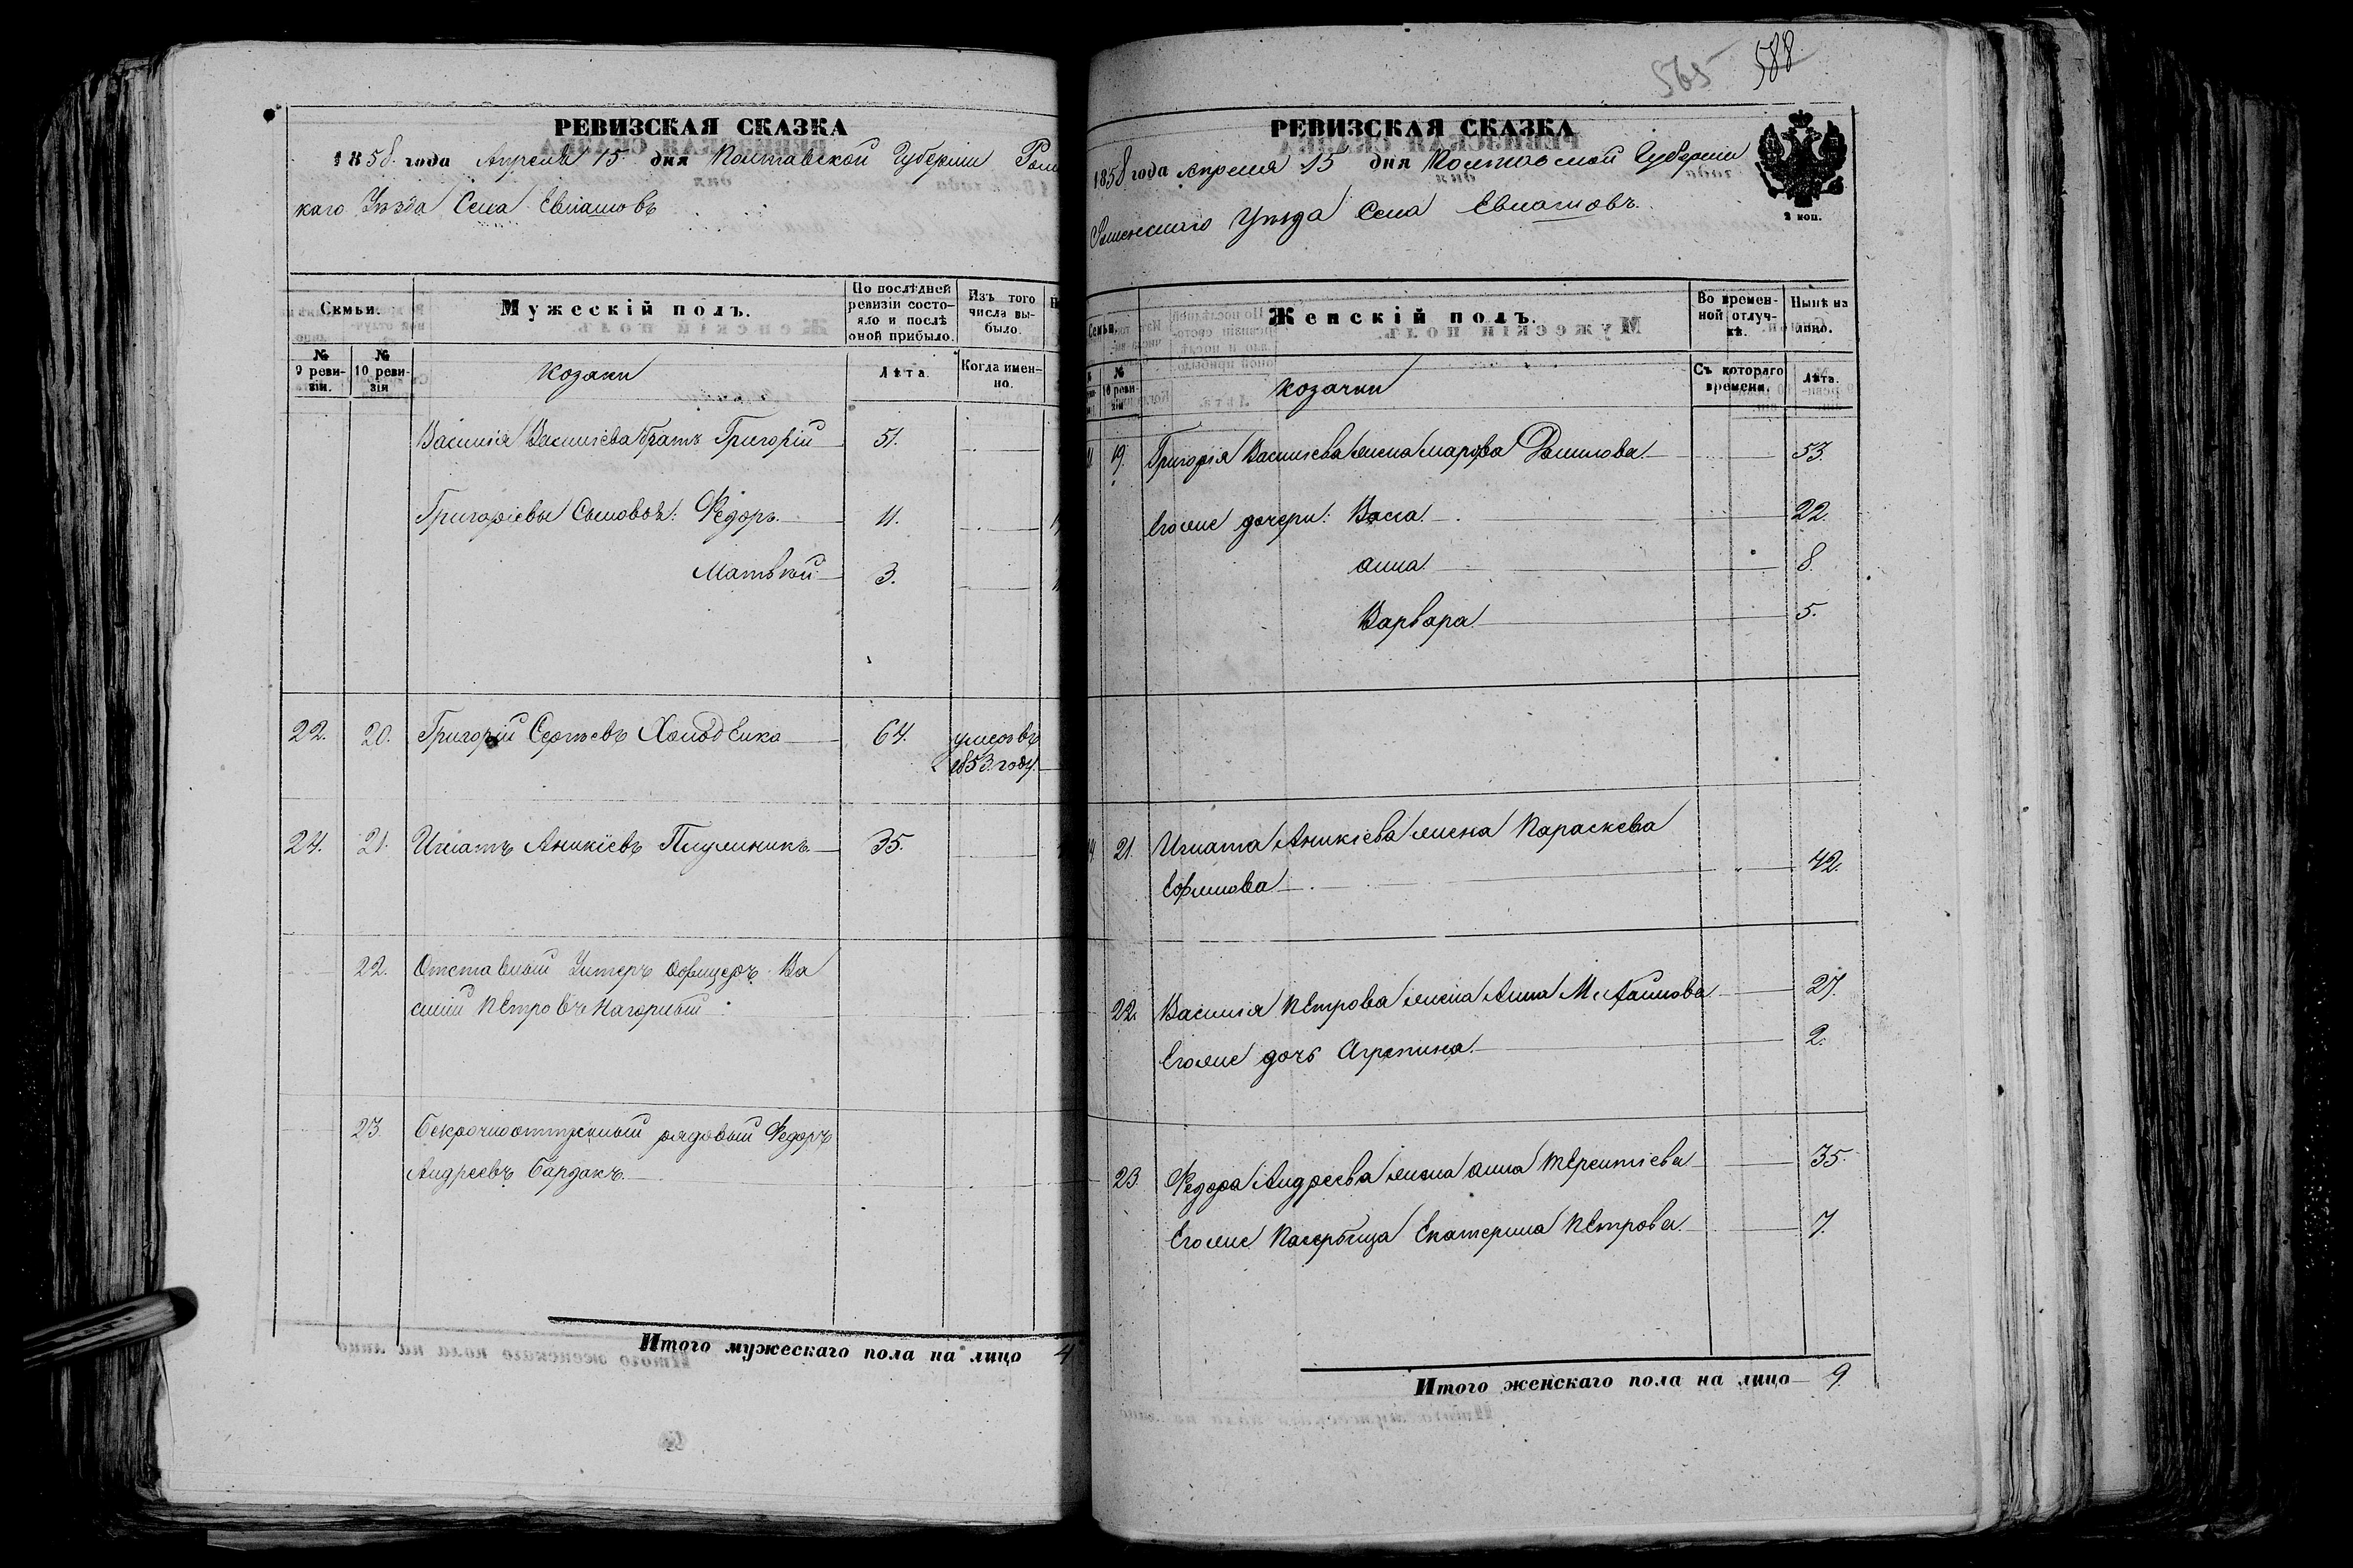 565 588
РЕВИЗСКАЯ СКАЗКА
1858 года Апреля 15 дня Полтавской Губернии Роме
каго Уѣзда Села Евлашовъ
Семьи.
Мужескій полъ.
По послѣдней ревизіи состояло и послѣ оной прибыло.
Изъ того числа выбыло.
№ 9 ревизіи.
№ 10 ревизіи
Козаки
Лѣта.
Когда именно.
Василія Васильева братъ Григорій 51.
Григоріевы Сыновья: Федоръ 11.
Матвѣй 3.
22. 20. Григорій Сергѣевъ 64. умеръ въ
1853 году.
24. 21. Игнатъ Аникіевъ 35.
22. Отставный Унтеръ Офицеръ Ва
силій Петровъ Нагорный
23. Безсрочноотпускный рядовый Федоръ
Андреевъ Бардакъ.
Итого мужескаго пола на лицо 4
РЕВИЗСКАЯ СКАЗКА
1858 года Апреля 15 дня Полтавской Губерніи
Роменскаго Уѣзда Села Евлашовъ.
2 коп.
Семьи.
Женскій полъ.
Во временной отлучкѣ.
Нынѣ на лицо.
№ 10 ревизіи
Козачки
Съ котораго времени.
Лѣта.
19. Григорія Васильева жена Марфа Данилова 53.
Егоже дочери: Васса 22.
Анна 8.
Варвара 5.
21. Игната Аникіева жена Параскева
Ефимова 42.
22. Василія Петрова жена Анна Михайлова 27.
Егоже дочь Агрепина. 2.
23. Федора Андреева жена Анна Терентіева 35.
Егоже Пасербица Екатерина Петрова 7.
Итого женскаго пола на лицо 9.